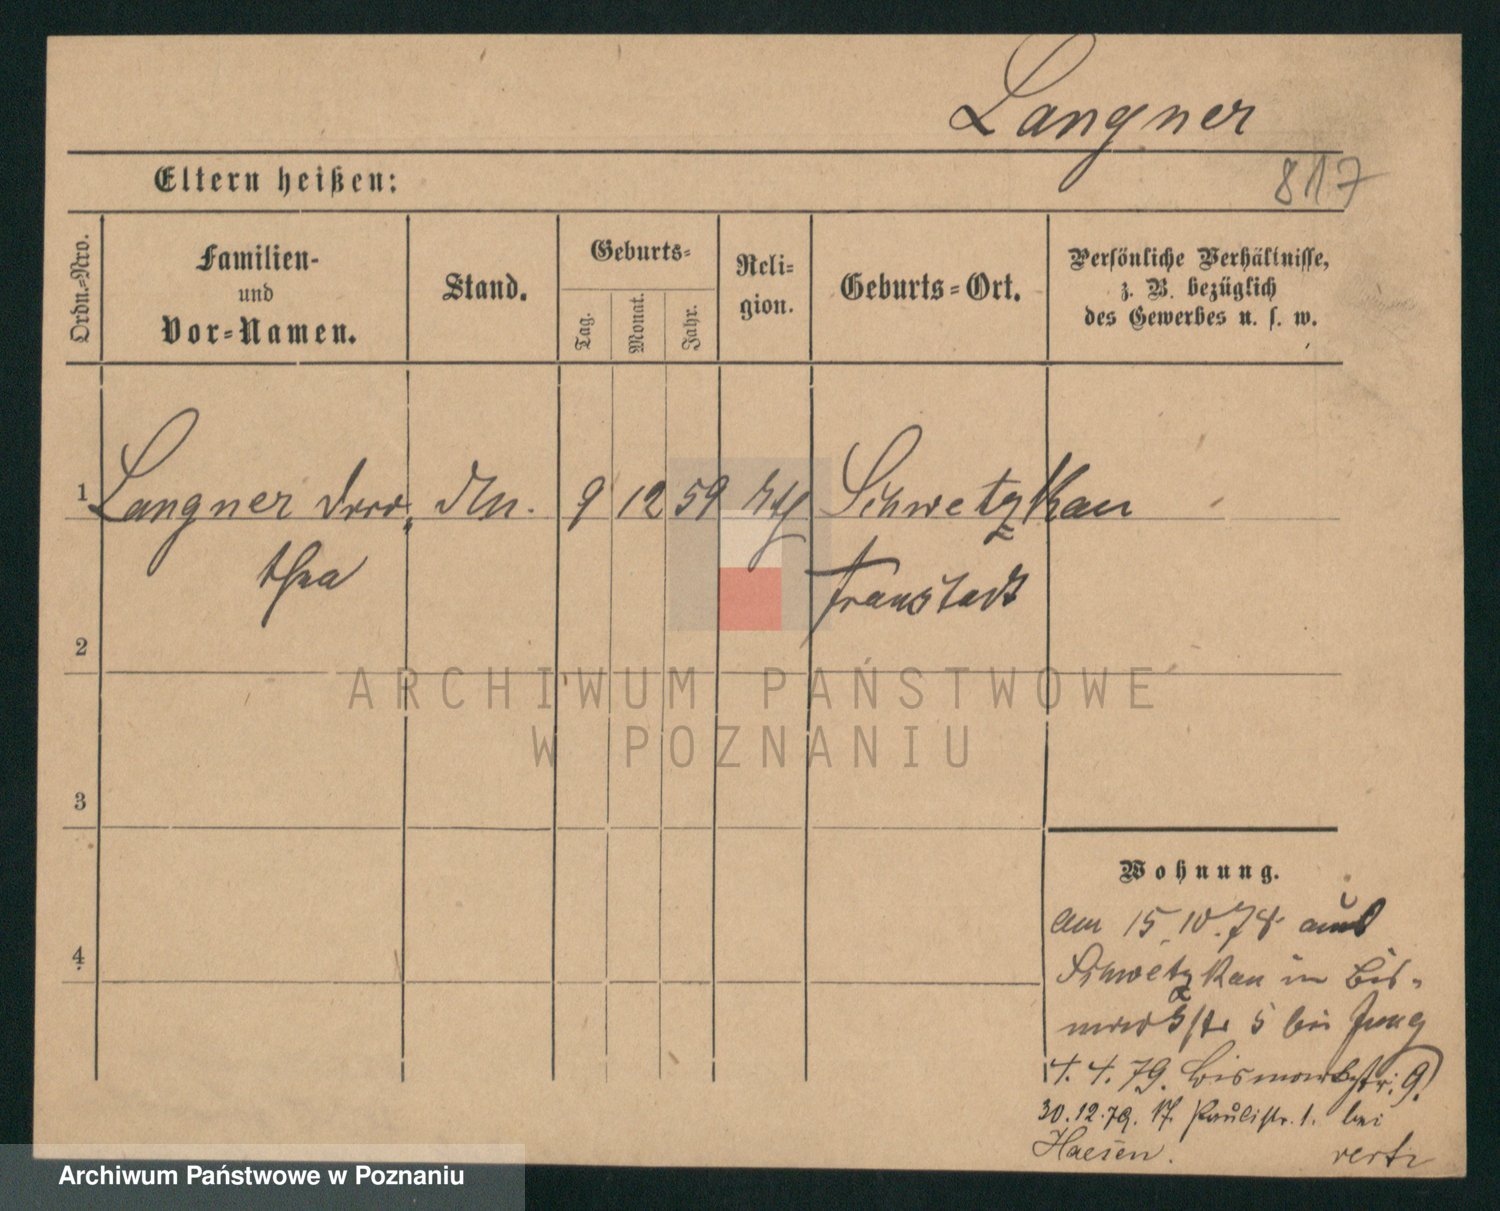 Langner
817
Eltern heißen:
Ordn.-Nro.
Familien-
und
Vor-Namen.
Stand.
Geburts-
Tag.
Monat.
Jahr.
Reli-
gion.
Geburts-Ort.
Persönliche Verhältnisse,
z. B. bezüglich
des Gewerbes u. s. w.
1
Langner Doro,
thea
9 12 59
Schwetzkau
Fraustadt
2
3
4
ARCHIWUM PAŃSTWOWE
W POZNANIU
Wohnung.
Am 15.10.78 aus
Schwetzkau in Bis-
marckstr 5 bei Jung
4. 4. 79. Bismarckstr. 9.
30.12.79. Paulistr. 1. bei
Haesen. verte
Archiwum Państwowe w Poznaniu